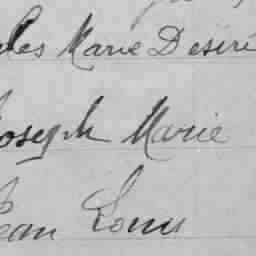 Marie Désiré
Joseph Marie
Jean Louis